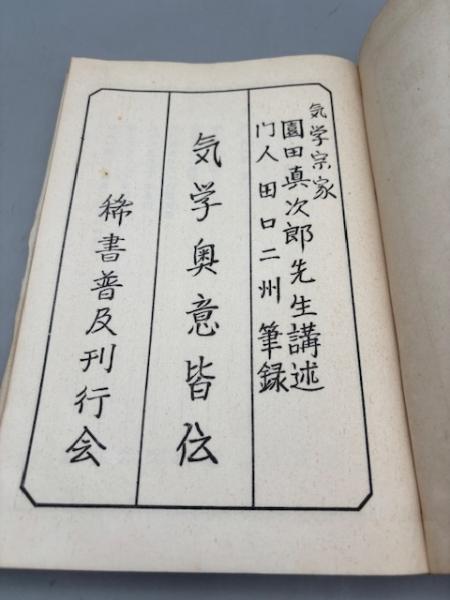 気学宗家
園田真次郎先生講述
门人田口二州筆録
気学奥意皆伝
稀書普及刊行会